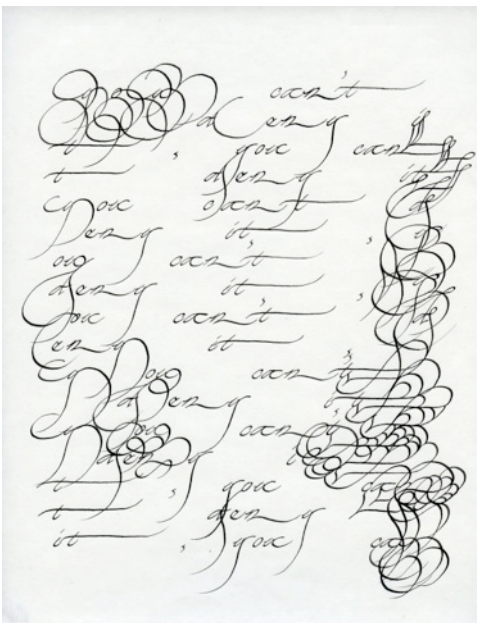 you can't
deny
it, you can
t deny it
you can't
Deny it,
you can't
deny it,
you can't
Deny it
you can't
Deny it,
you can't
Deny it
it, you can
t deny
it, you can